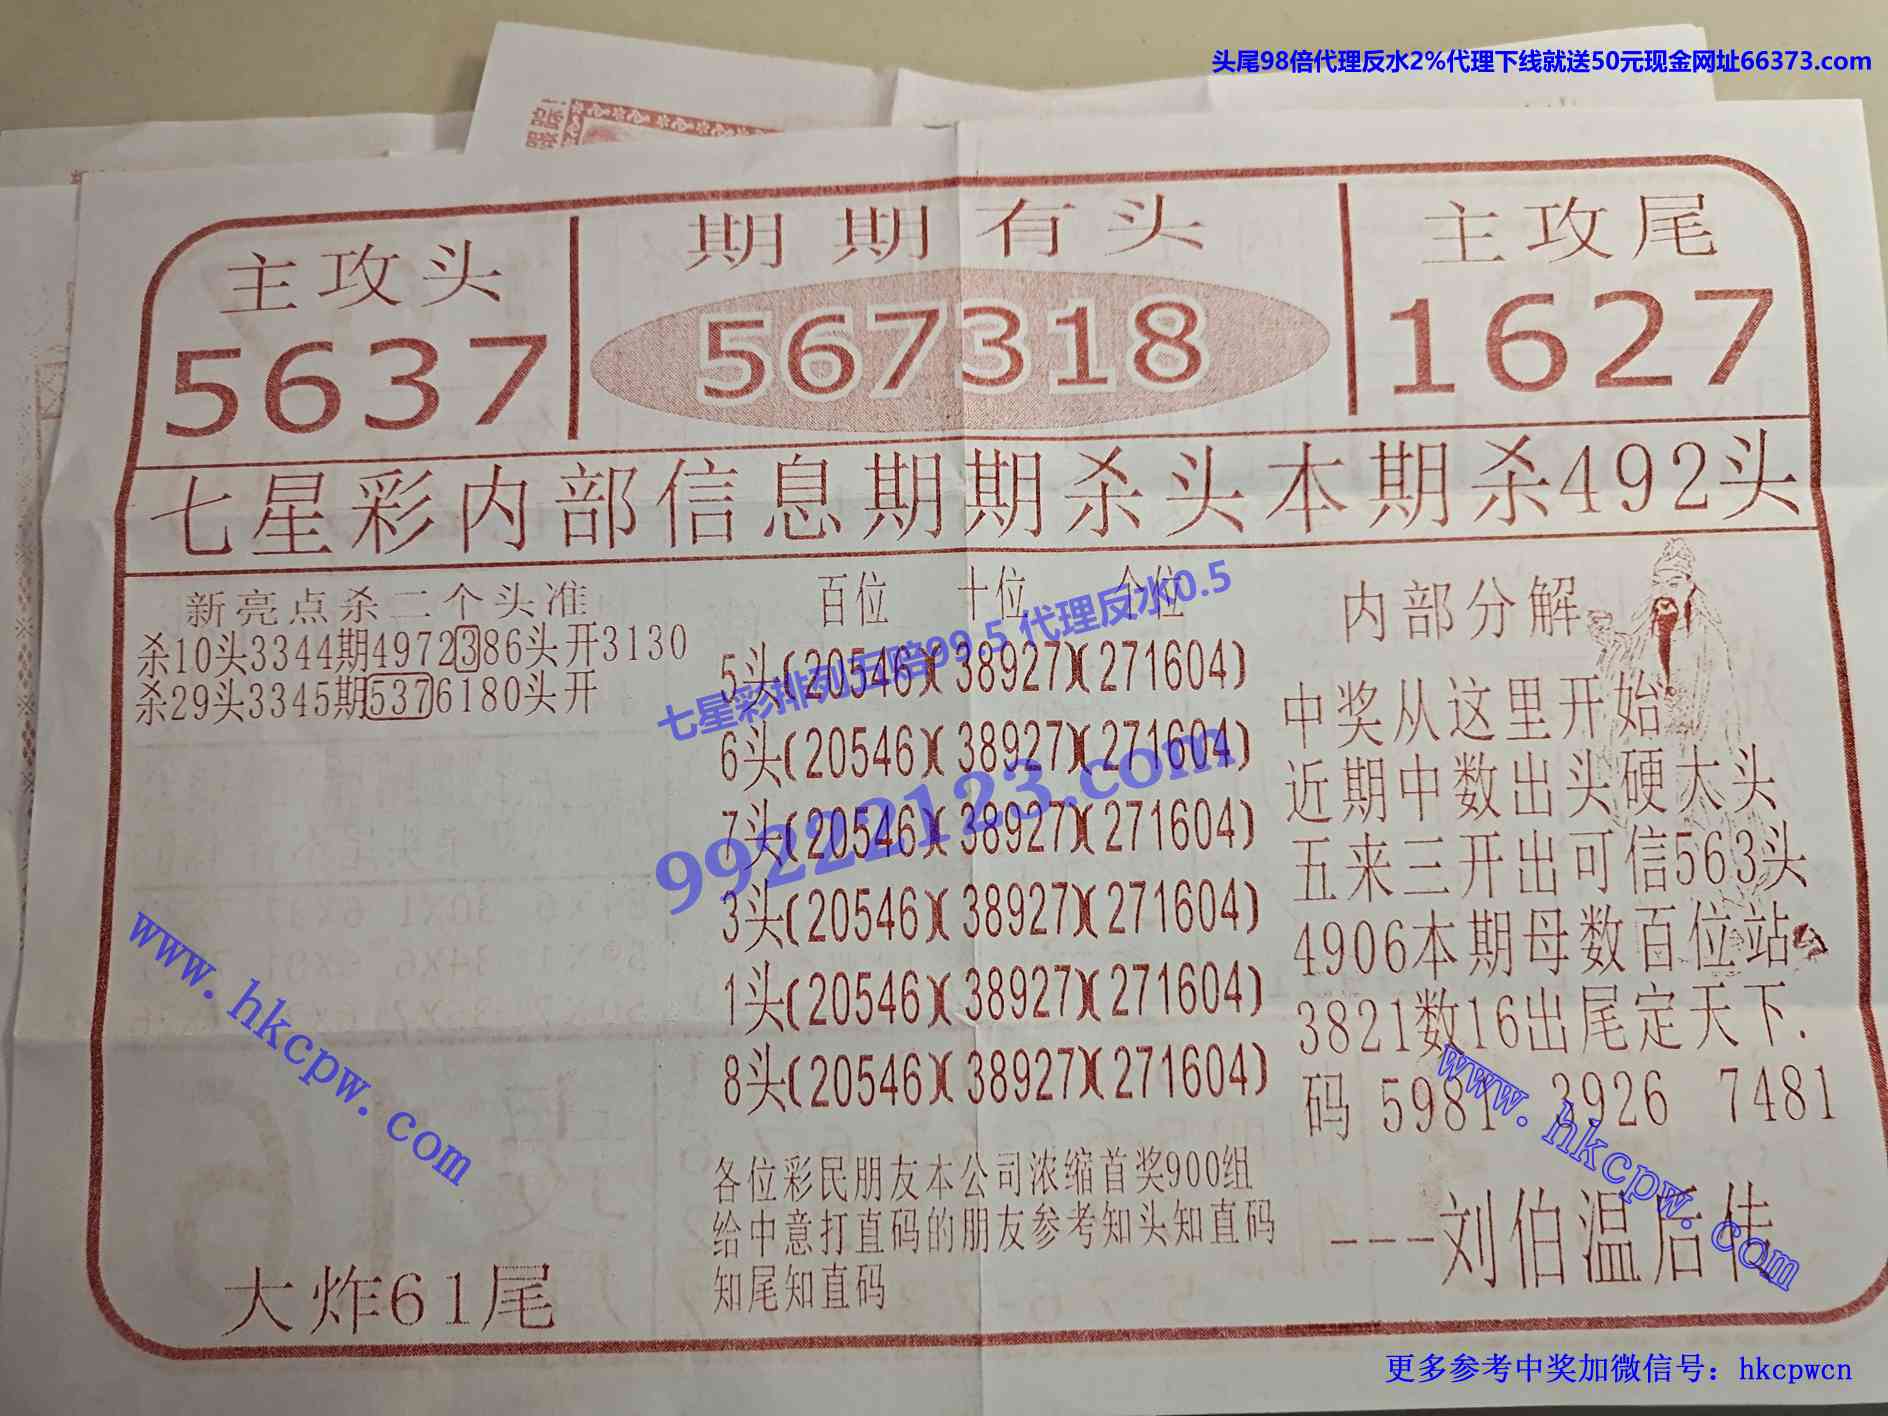 头尾98倍代理反水2%代理下线就送50元现金网址66373.com
主攻头
5637
期期有头
567318
主攻尾
1627
七星彩内部信息期期杀头本期杀492头
新亮点杀二个头准
杀10头3344期4972386头开3130
杀29头3345期5376180头开
大炸61尾
百位 十位 个位
5头(20546)(38927)(271604)
6头(20546)(38927)(271604)
7头(20546)(38927)(271604)
3头(20546)(38927)(271604)
1头(20546)(38927)(271604)
8头(20546)(38927)(271604)
各位彩民朋友本公司浓缩首奖900组
给中意打直码的朋友参考知头知直码
知尾知直码
内部分解
中奖从这里开始
近期中数出头硬大头
五来三开出可信563头
4906本期母数百位站
3821数16出尾定天下.
码 5981 3926 7481
---刘伯温后传
七星彩排列五赔99.5 代理反水0.5
99222123.com
www.hkcpw.com
www.hkcpw.com
更多参考中奖加微信号：hkcpwcn